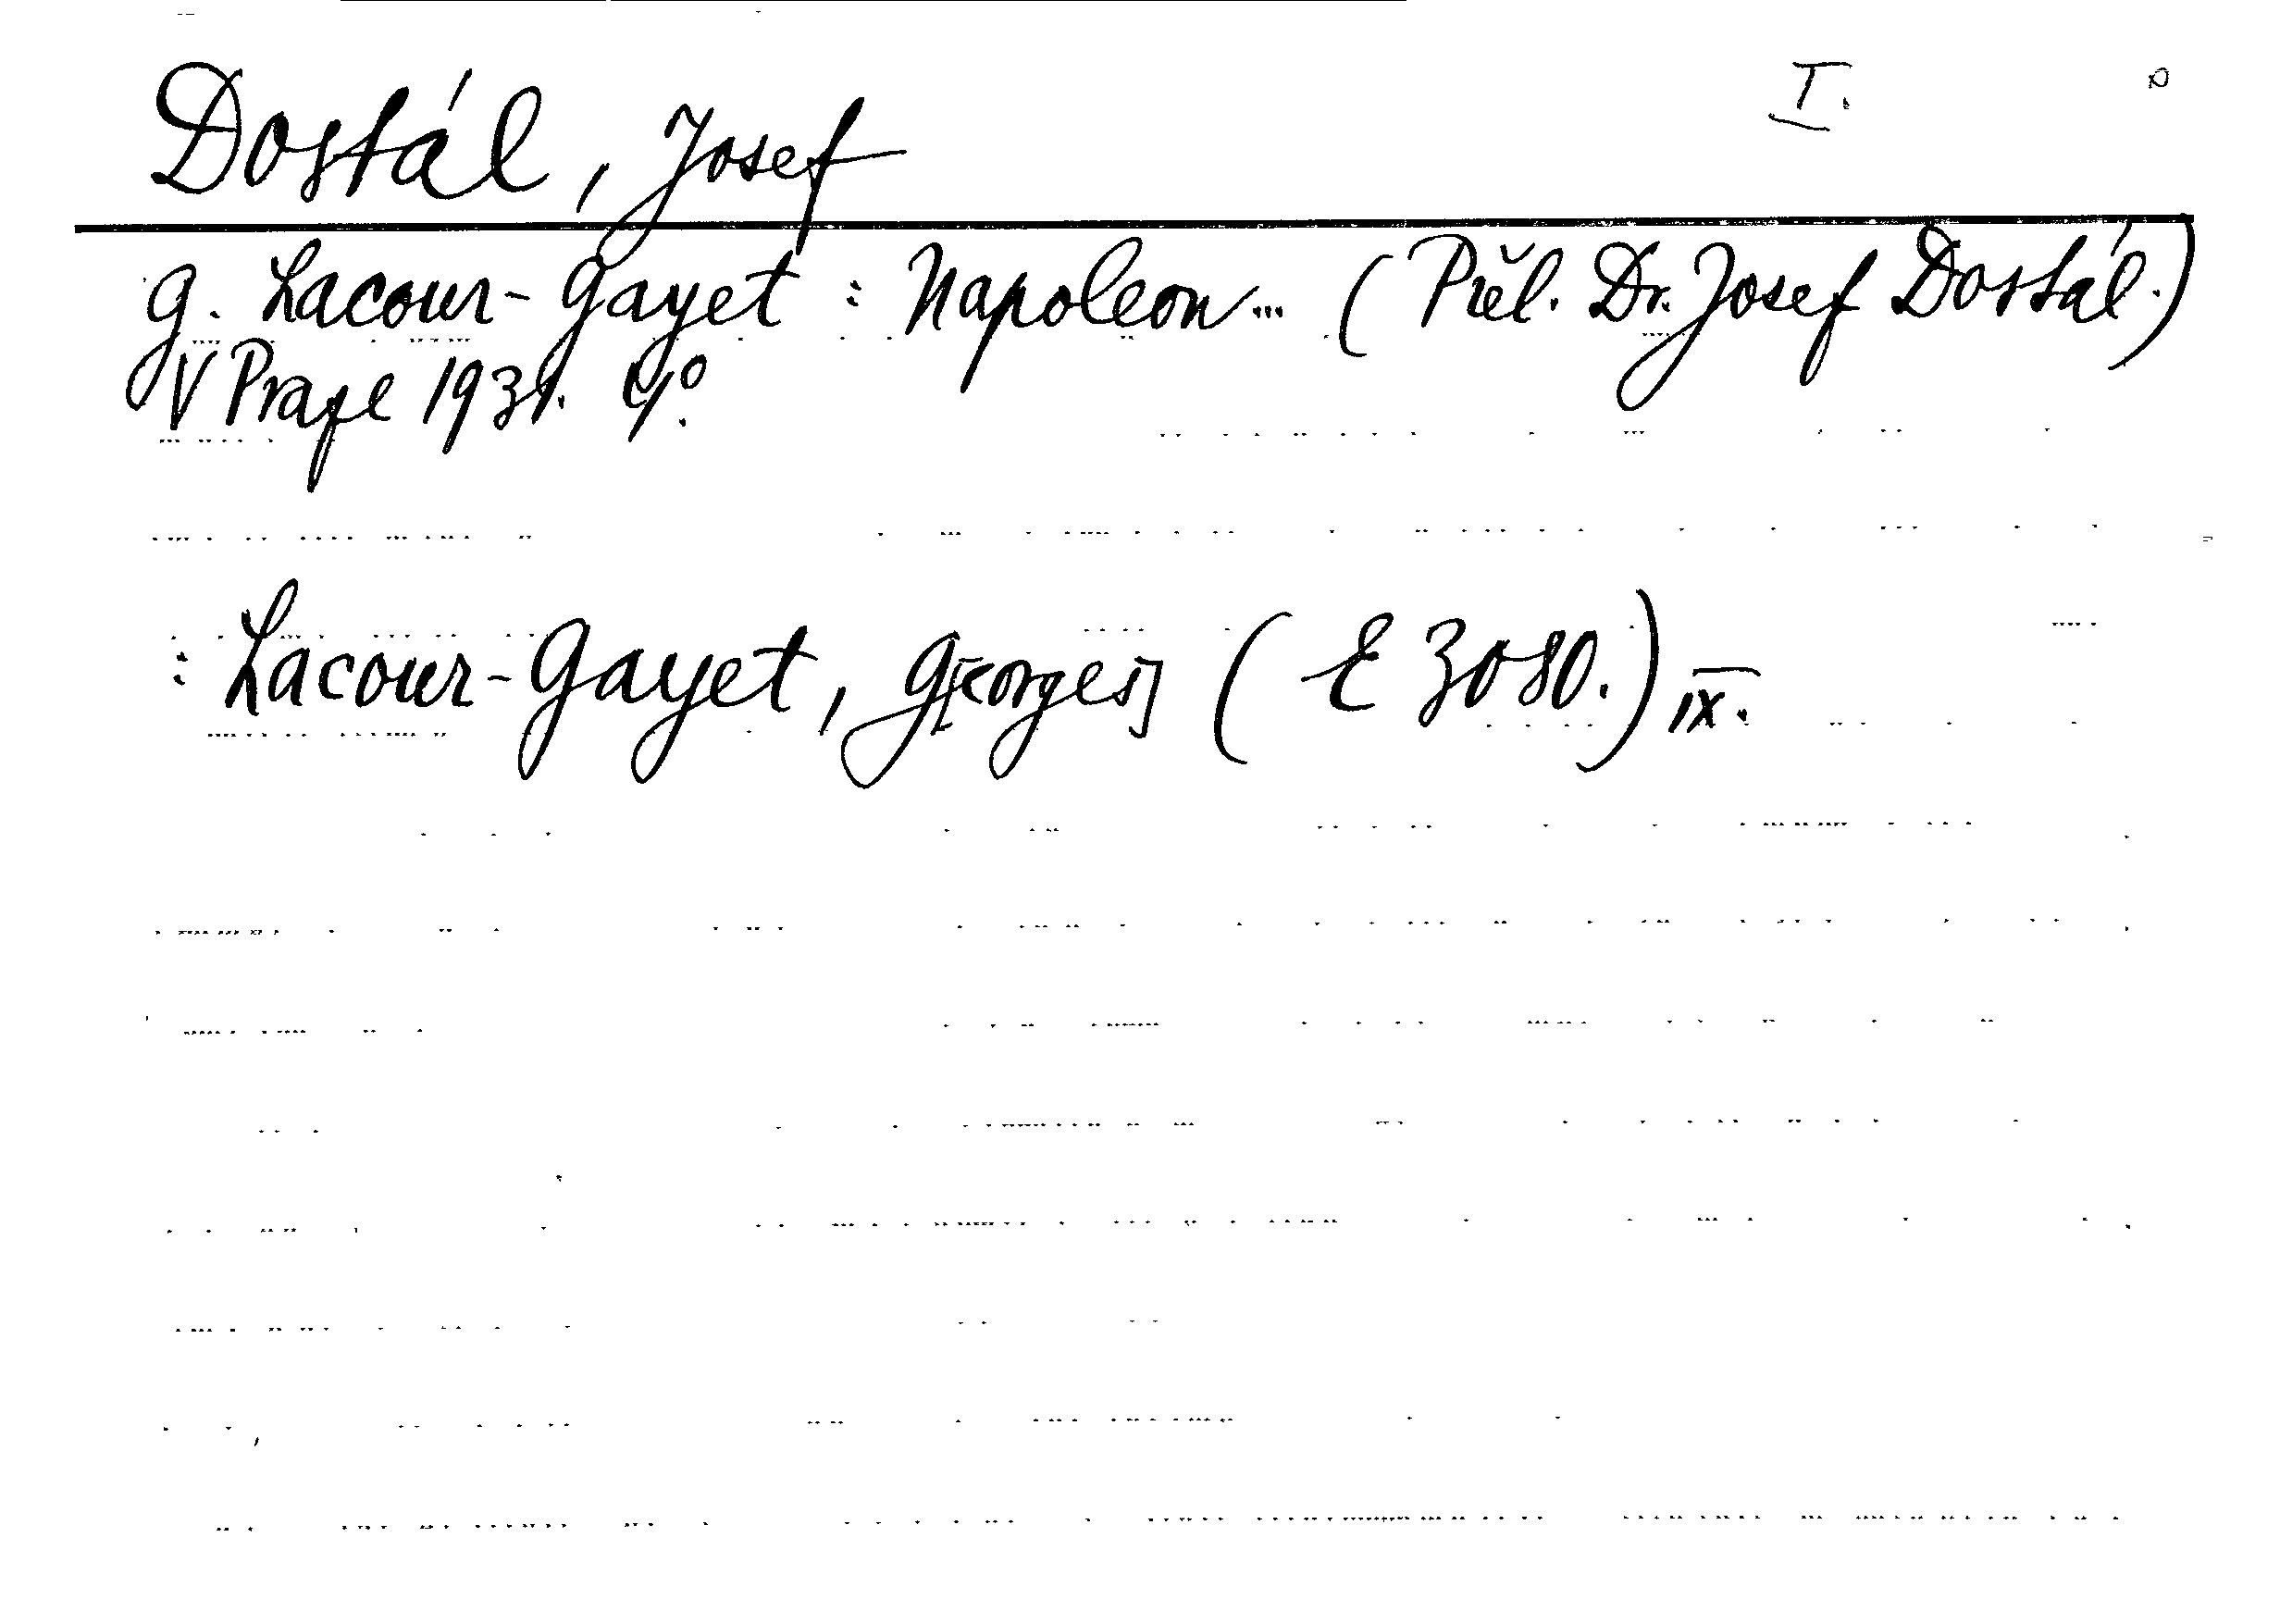 Dostál, Josef I.
G. Lacour-Gayet : Napoleon... (Přel. Dr. Josef Dostál.)
V Praze 1931. 4°.
: Lacour-Gayet, G[eorges] (E 3080.) IX.